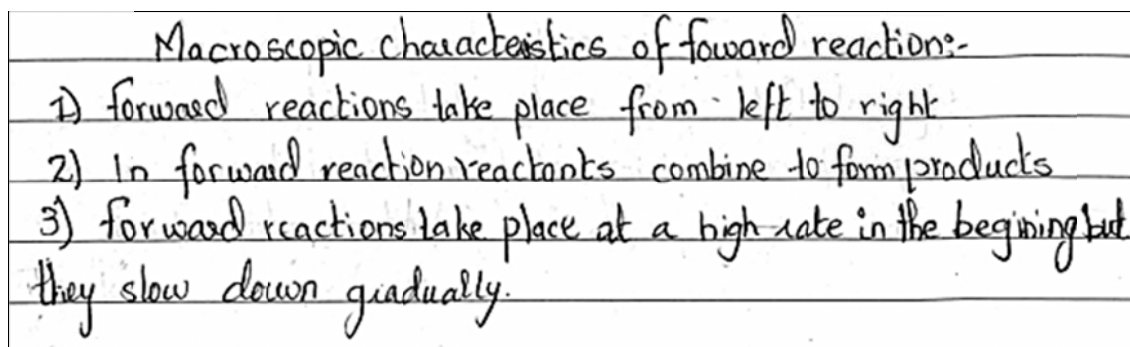 Macroscopic characteristics of foward reaction:-
1) forward reactions take place from left to right
2) In forward reaction reactants combine to form products
3) forward reactions take place at a high rate in the begining but
they slow down gradually.